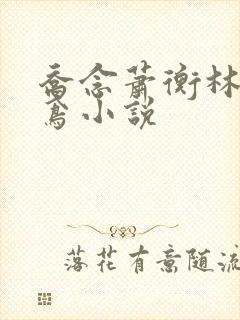 喬念蕭衡林
鳶小說
落花有意随流